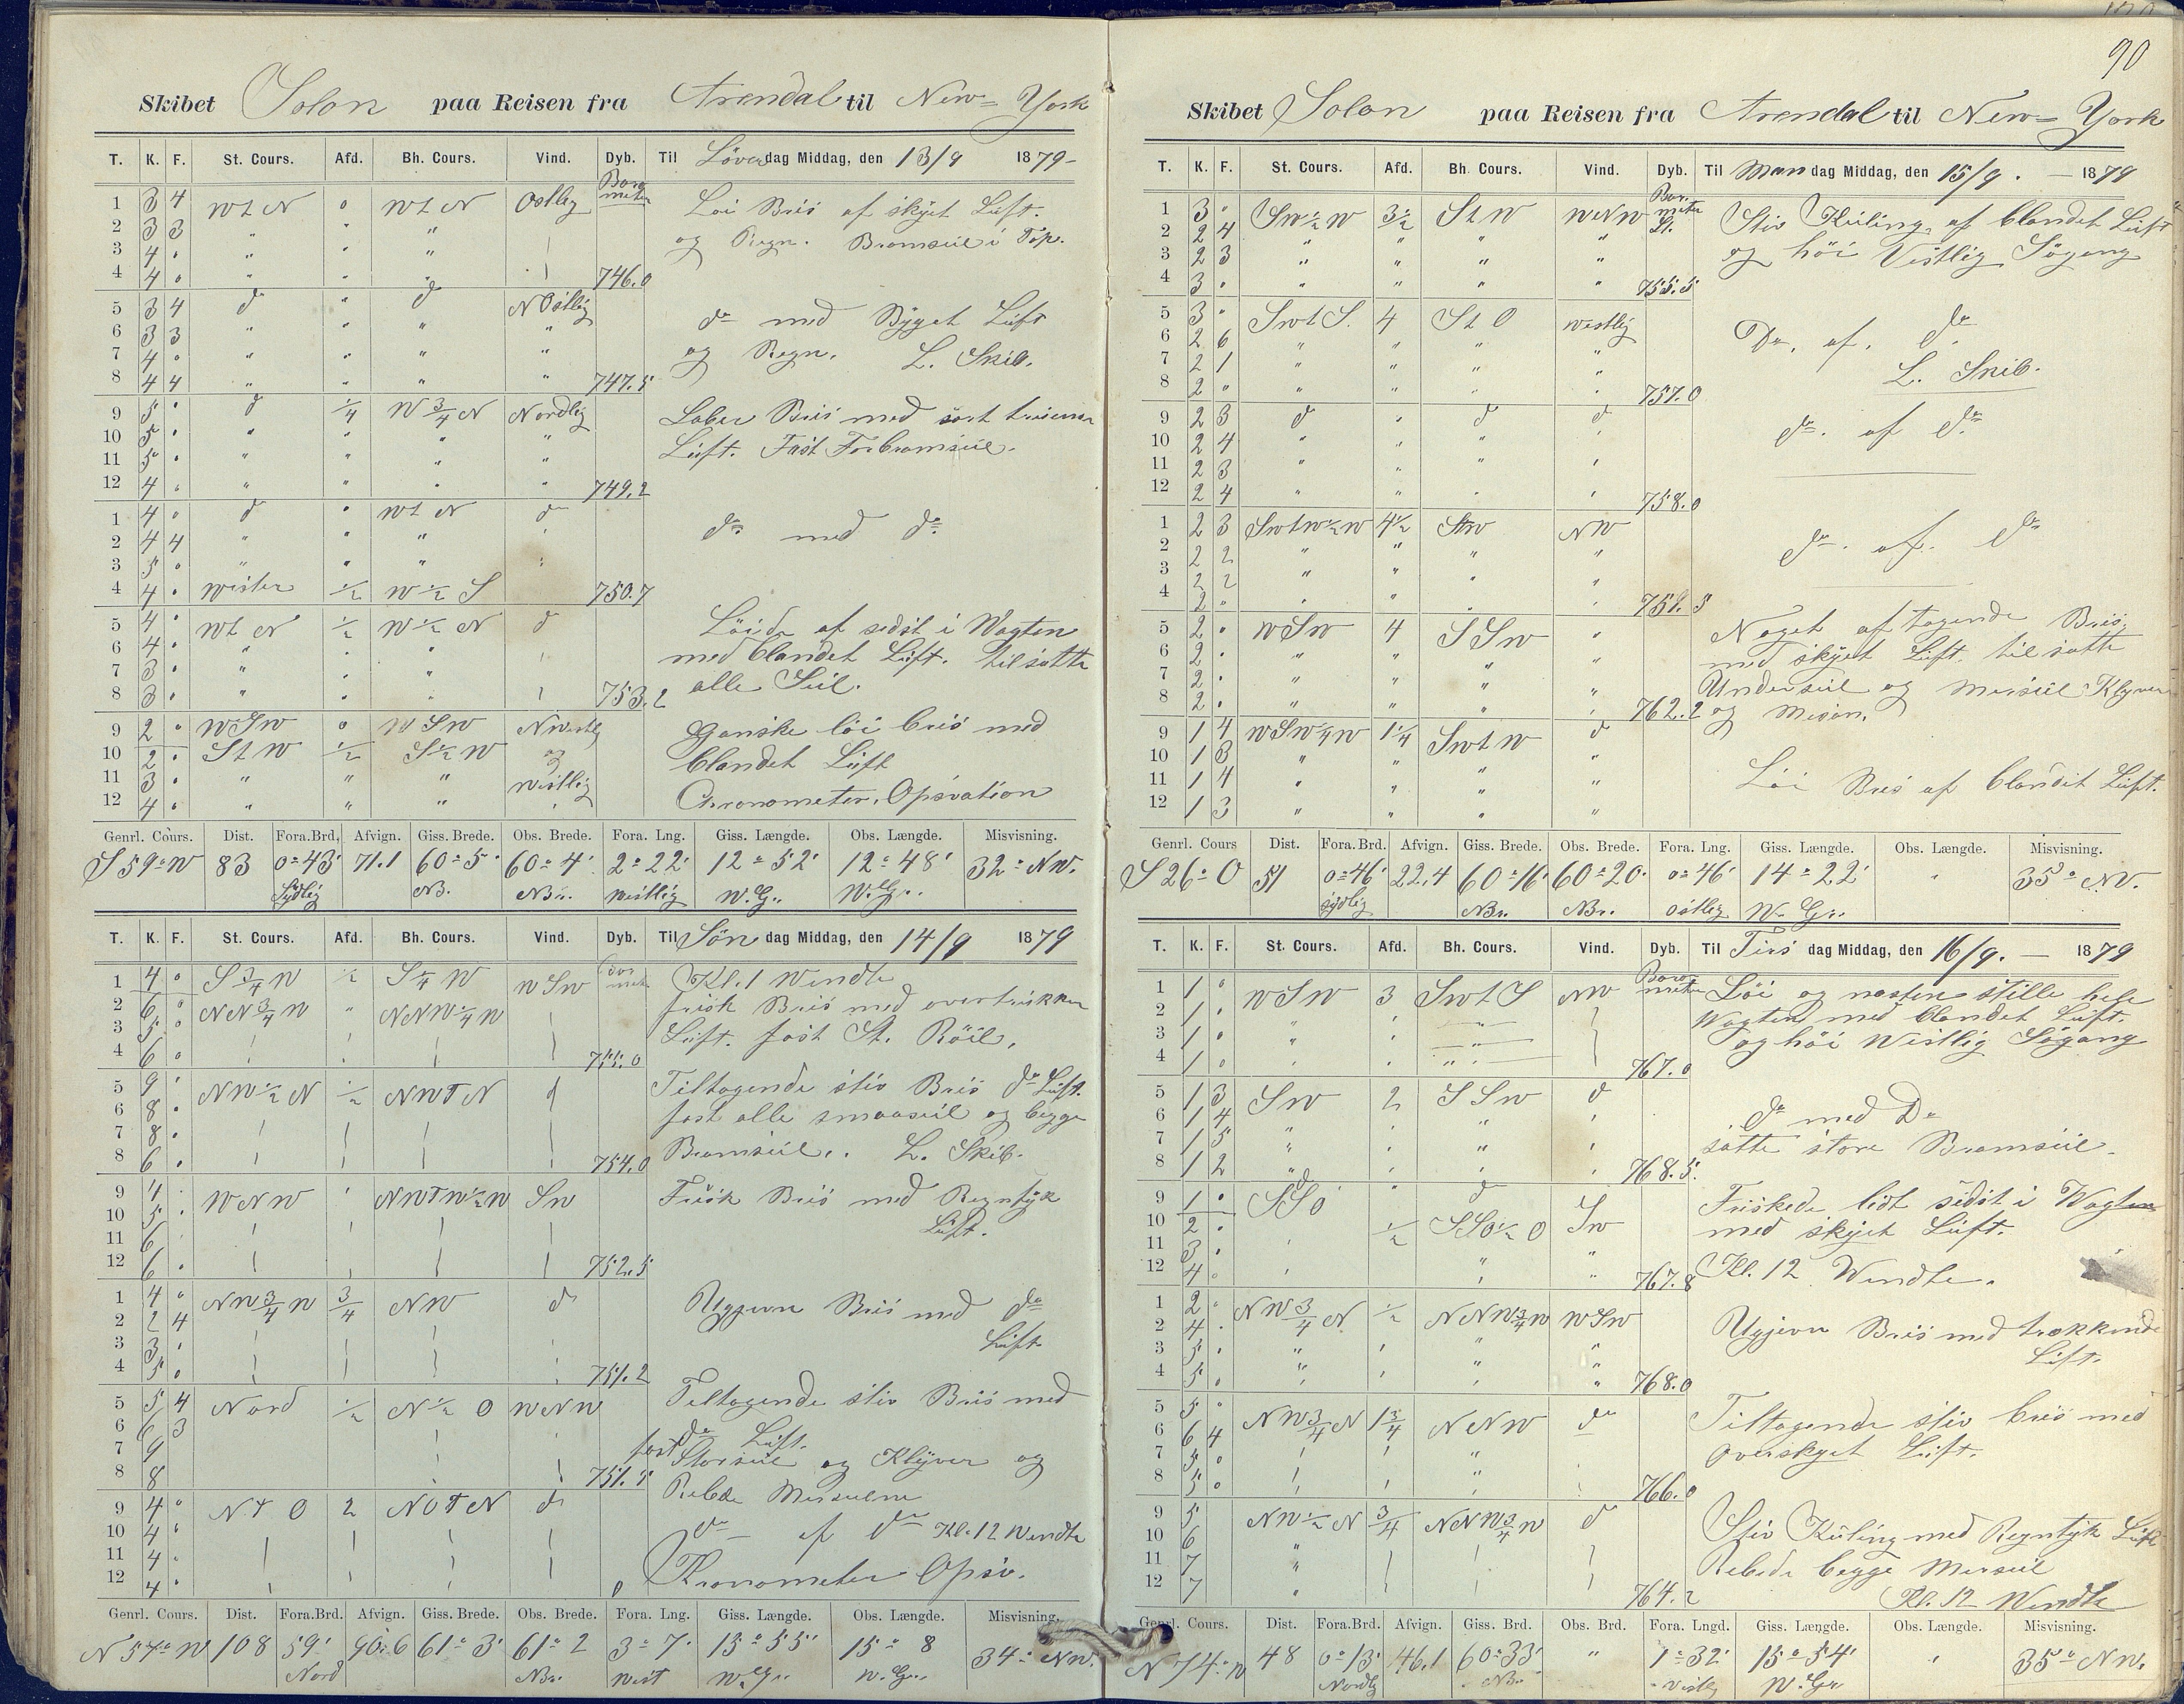 90
Skibet Solon paa Reisen fra Arendal til New= York
T. K. F. St. Cours. Afd. Bh. Cours. Vind. Dyb. Til Löverdag Middag, den 13/9 1879-
Barometer
1 3 4 W t N 0 W t N Ostlig Löi Bris af skÿet Luft.
2 3 3 " " " og Regn. Bramseil i Top.
3 4 " " " "
4 4 " " " " 746.0
5 3 4 do " do N Ostlig do med Bÿget Luft
6 3 3 " " " " og Regn. L. Skib.
7 4 " " " "
8 4 4 " " " " 747.5
9 5 do 1/4 W 3/4 N Nordlig Laber Bris med
10 5 " " " " Luft. Fast Forbramseil.
11 5 " " " "
12 4 " " " " 749.2
1 4 do " W t N do do med do
2 4 4 " " "
3 5 " " "
4 4 Wester 1/2 W 1/2 S 750.7
5 4 W t N 1/2 W 1/2 N do Löiede af sidst i Wagten
6 4 " " " med blandet Luft. tilsatte
7 3 " " " alle Seil.
8 3 " " " 753.2
9 2 WSW 0 WSW NWestlig Ganske löi bris med
10 2 S t W 1/2 S 1/2 W og blandet Luft
11 3 " " " Westlig
12 4 " " " Chronometer. Opsvation
Genrl. Cours. Dist. Fora.Brd, Afvign. Giss. Brede. Obs. Brede. Fora. Lng. Giss. Længde. Obs. Længde. Misvisning.
S 59° W 83 0° 43' 71.1 60° 5' 60° 4' 2° 22' 12° 52' 12° 48' 32° NW.
Sÿdlig NB. NBr. westlig W.Gr. W.Gr.
T. K. F. St. Cours. Afd. Bh. Cours. Vind. Dyb. Til Söndag Middag, den 14/9 1879
1 4 S 3/4 W 1/2 S 1/4 W WSW Kl. 1 Wendte
2 6 NW 3/4 W " NNW 1/4 W frisk Bris med overtrukken
3 5 Luft. fast St. Röil.
4 6 755.0
5 9 NW 1/2 N 1/2 NWTN do Tiltagende stiv Bris do Luft.
6 8 fast alle smaaseil og begge
7 8 Bramseil. L. Skib.
8 6 754.0
9 4 WNW " NWTW 1/2 W SW Frisk Bris med Regntÿk
10 5 Luft.
11 6
12 6 752.5
1 4 NW 3/4 W 3/4 NW do Ugjevn Bris med do
2 2 4 Luft.
3 3
4 5 751.2
5 5 4 Nord 1/2 N 1/2 O WNW Tiltagende stiv Bris med
6 6 3 do Luft.
7 9 fast Storseil og Klÿver og
8 8 751.5 Rebede Merseilene
9 4 N T O 2 NOTN do do af do Kl. 12 Wendte
10 4
11 4 Kronometer Opsv.
12 4
Genrl. Cours. Dist. Fora.Brd. Afvign. Giss. Brede. Obs. Brede. Fora. Lng. Giss. Længde. Obs. Længde. Misvisning.
N 57° W 108 59' 90.6 61° 3' 61° 2 3° 7' 15° 55' 15° 8 34° NW.
Nord NBr. west W.Gr. W.Gr.
Skibet Solon paa Reisen fra Arendal til New= York
T. K. F. St. Cours. Afd. Bh. Cours. Vind. Dyb. Til Mandag Middag, den 15/9. 1879
Barometer St.
1 3 SW 1/2 W 3 1/2 S t W WNW Stiv Kuling af blandet Luft
2 2 4 " " " " og höi Vestlig Sögang
3 2 3 " " " "
4 3 " " " " 755.5
5 3 SWtS. 4 S t O westlig Do. af. do
6 2 6 " " " " L. Skib.
7 2 1 " " " "
8 2 " " " " 757.0
9 2 3 do " do do do. af do
10 2 4 " " "
11 2 3 " " "
12 2 4 " " " 758.0
1 2 3 SWtW 1/2 W 4 1/2 StW NW do. af. do
2 2 2 " " " "
3 2 2 " " " "
4 2 " " " 759.5
5 2 WSW 4 SSW " Noget aftagende Bris.
6 2 " " " " med skÿet Luft. tilsatte
7 2 " " " " Underseil og Merseil Klyver
8 2 " " " " 762.2 og Mesan.
9 1 4 WSW 1/4 W 1 1/4 SWtW do
10 1 3 " " " "
11 1 4 " " " " Löi Bris af blandet Luft.
12 1 3 " " " "
Genrl. Cours Dist. Fora. Brd. Afvign. Giss. Brede. Obs. Brede. Fora. Lng. Giss. Længde. Obs. Længde. Misvisning.
S 26° O 51 0° 46' 22.4 60° 16' 60° 20' 0° 46' 14° 22' " 35° NV.
sÿdlig NBr. NBr. ostlig W. Gr.
T. K. F. St. Cours. Afd. Bh. Cours. Vind. Dyb. Til Tirsdag Middag, den 16/9. 1879
Barometer
1 1 WSW 3 SWtS NW Löi og næsten stille hele
2 1 " " " Wagten med blandet Luft.
3 1 " " " og höi Westlig Sögang
4 1 " " " 767.0
5 1 3 SW 2 SSW do do med Do
6 1 4 " " " "
7 1 5 " " " " satte store Bramseil.
8 1 2 " " " " 768.5
9 1 SSO " do Friskede lidt sidst i Wagten
10 2 1/2 SSO 1/2 O SW med skÿet Luft.
11 3 " " "
12 4 " " " 767.8 Kl. 12 Wendte.
1 2 NW 3/4 N 1/2 NNW 3/4 W WSW Ugjevn Bris med trækkende
2 4 Luft.
3 5 " " " "
4 5 " " " " 768.0
5 5 NW 3/4 N 1 3/4 NNW do Tiltagende stiv bris med
6 6 4 overskyet Luft.
7 5 "
8 5 " 766.0
9 5 NW 1/2 N 3/4 NNW 3/4 W do Stiv Kuling med Regntÿk Luft
10 6 "
11 7 " Rebede begge Merseil
12 7 " 764.2 Kl. 12 Wendte
Genrl. Cours. Dist. Fora.Brd. Afvign. Giss. Brd. Obs. Brd. Fora. Lngd. Giss. Længde. Obs. Længde. Misvisning.
N 74° W 48 0° 13' 46.1 60° 33' " 1° 32' 15° 54' " 35° NW.
Nordlig NBr. Vestlig W.Gr.